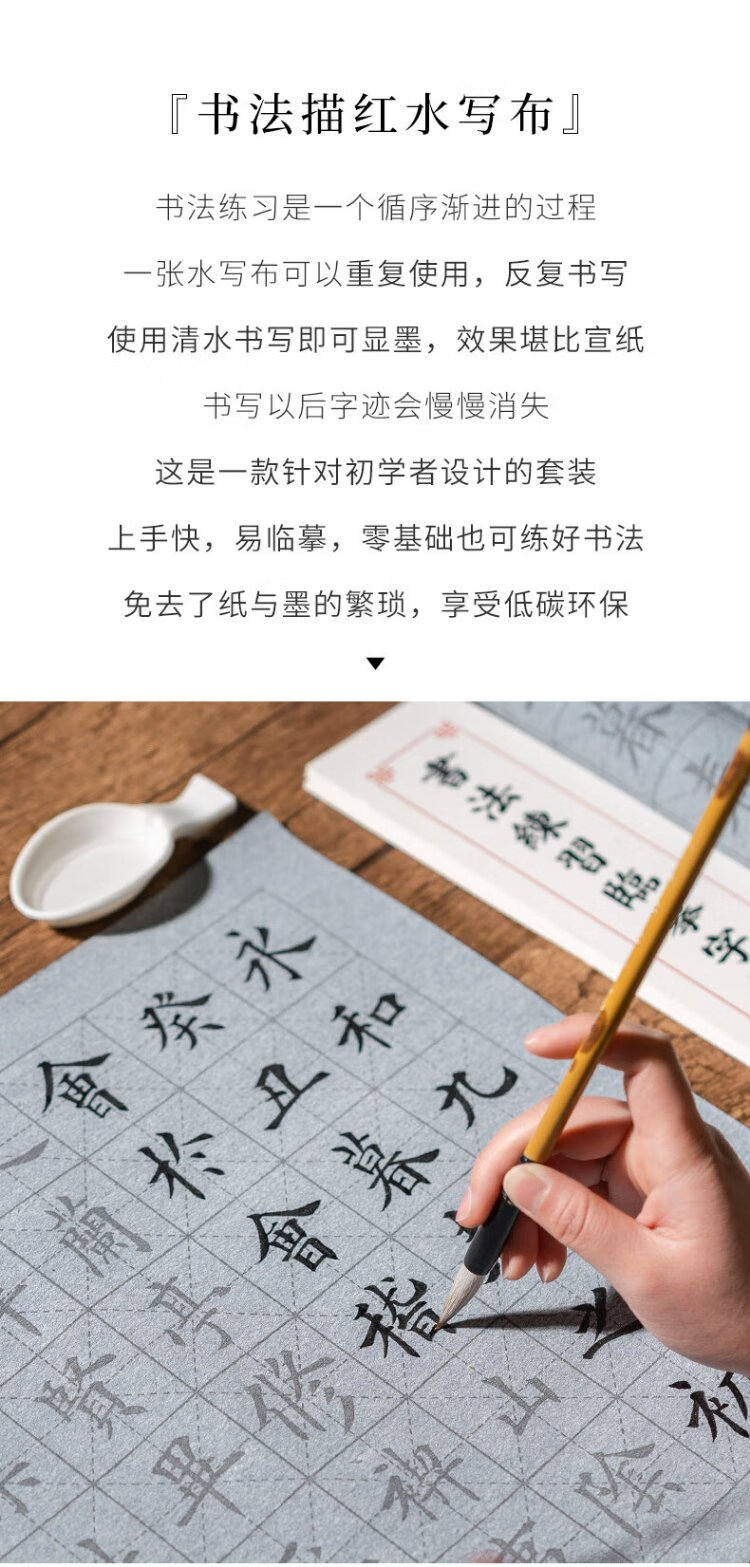 『书法描红水写布』
书法练习是一个循序渐进的过程
一张水写布可以重复使用，反复书写
使用清水书写即可显墨，效果堪比宣纸
书写以后字迹会慢慢消失
这是一款针对初学者设计的套装
上手快，易临摹，零基础也可练好书法
免去了纸与墨的繁琐，享受低碳环保
書法練習臨摹字
永和九
癸丑暮之初
會於會稽山陰
蘭亭修禊
賢畢